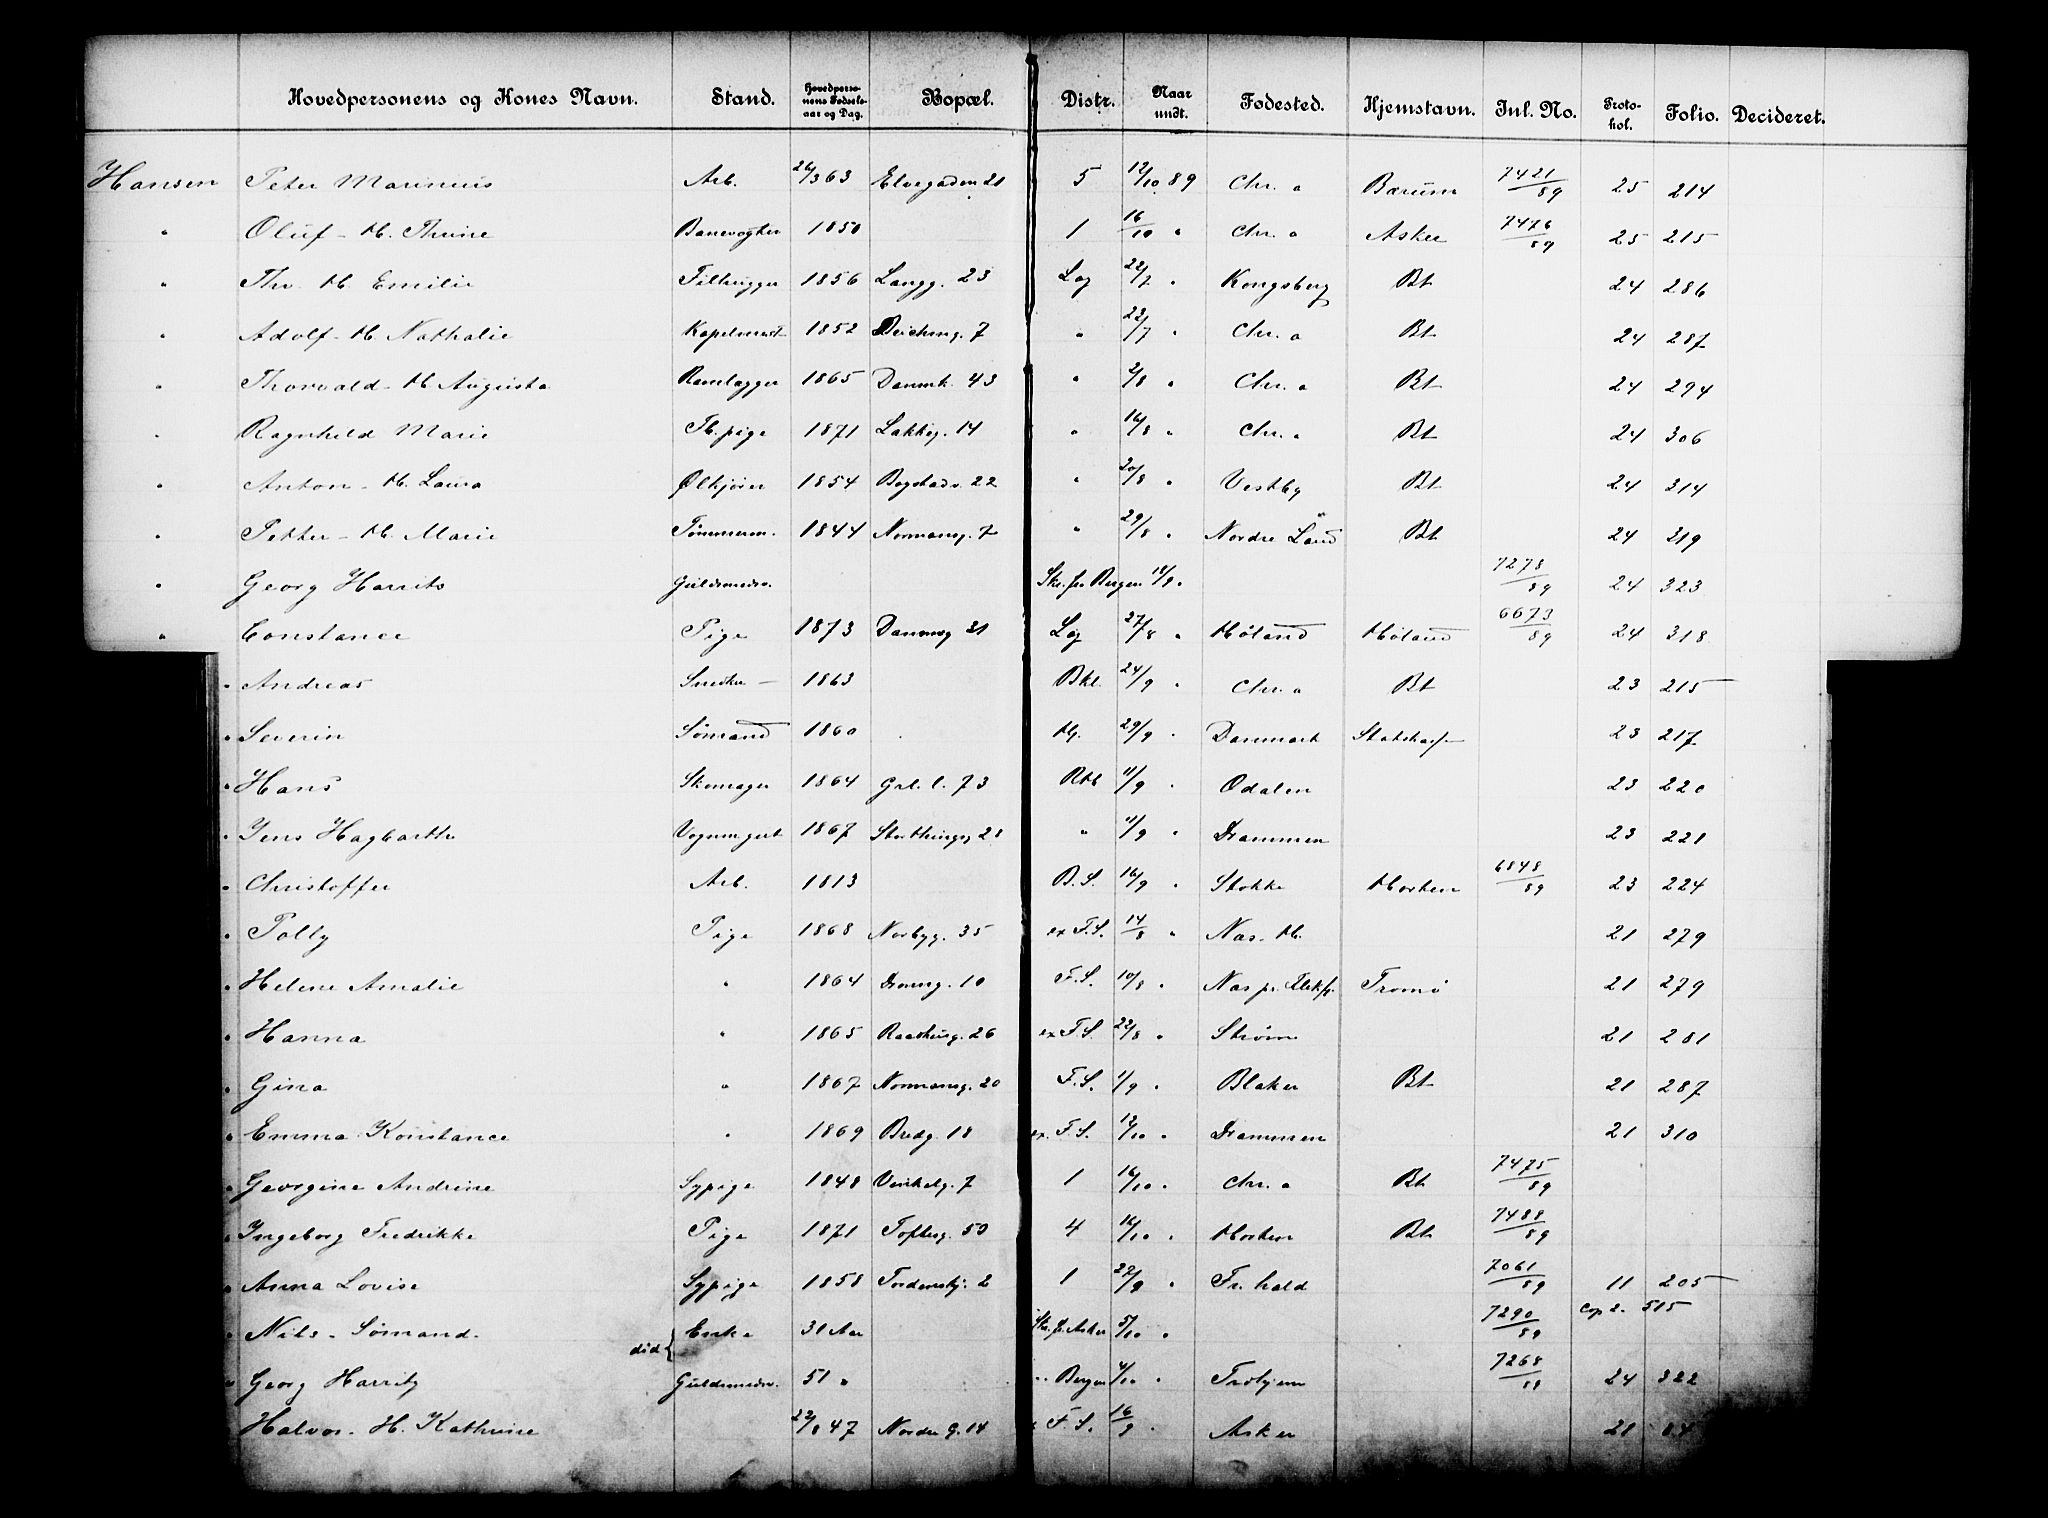 Hovedpersonens og Kones Navn. Stand. Hovedperso-nens Fødsels-aar og Dag. Bopæl. Distr. Naar undt. Fødested. Hjemstavn. Jnl. No. Proto-kol. Folio. Decideret.
Hansen Peter Marinius Arb. 26/3 63 Elvegaden 21 5 12/10 89 Chr. a Bærum 7421/89 25 214
" Oluf - H. Thrine Banevogter 1850 1 16/10 " Chr. a Asker 7476/89 25 215
" Thv. H. Emilie 1856 Langg. 23 Log 22/7 " Kongsberg Bt 24 286
" Adolf - H. Nathalie Kapelmest 1852 Deichmg. 7 " 22/7 " Chr. a Bt 24 287
" Thorvald - H Augusta Rørlægger 1865 Danmk. 43 " 2/8 " Chr. a Bt 24 294
" Ragnhild Marie Tb. pige 1871 Lakkeg. 14 " 16/8 " Chr. a Bt 24 306
" Anton - H. Laura Ølkjører 1854 Bogstadv. 22 " 20/8 " Vestby Bt 24 314
" Petter - H. Marie Tømmerm. 1844 Normansg. 7 " 29/8 " Nordre Land Bt 24 319
" Georg Harrits Guldsmedsv. Skr. fra Bergen 18/9 " 7278/89 24 323
" Constance Pige 1873 Danmkg 31 Log 27/8 " Høland Høland 6673/89 24 318
" Andreas Snedker - 1863 Bkl. 24/9 " Chr. a Bt 23 215
" Severin Sømand 1860 Hg. 29/9 " Danmark 23 217
" Hans Skomager 1864 Grl. l. 73 Rkb 11/9 " Odalen 23 220
" Jens Hagbarth Vognmgut 1867 Storthingsg 28 " 11/9 " Drammen 23 221
" Christoffer Arb. 1813 B.S. 16/9 " Stokke Horten 6848/89 23 224
" Polly Pige 1868 Norbyg. 35 ex F.S. 14/8 " Næs. H. 21 279
" Helene Amalie " 1864 Dronng. 10 F.S. 10/8 " Næs pr. Flekfj. Tromø 21 279
" Hanna " 1865 Raadhusg. 26 ex F.S. 22/8 " Strøm 21 281
" Gina " 1867 Normansg. 20 F.S. 1/9 " Blaker Bt 21 287
" Emma Konstance " 1869 Bredg. 18 ex. F.S. 12/10 " Drammen 21 310
" Georgine Andrine Sypige 1848 Vinkelg. 7 1 16/10 " Chr. a Bt 7475/89
" Ingeborg Fredrikke Pige 1871 Toftesg. 50 4 16/10 " Horten Bt 7488/89
" Anna Lovise Sypige 1858 Tordenskj. 2 1 27/9 " Fr. hald 7061/89 11 205
" Nils - Sømand. Enke 31 Aar Skr. fr. Asker 5/10 " 7290/89 Cop 2. 515
død {
" Georg Harritz Guldsmedsv. 51 " " Bergen 4/10 " Trohjem 7268/89 24 322
Halvor - H. Kathrine 22/8 47 Nordre G. 14 F.S. 16/9 " Asker 21